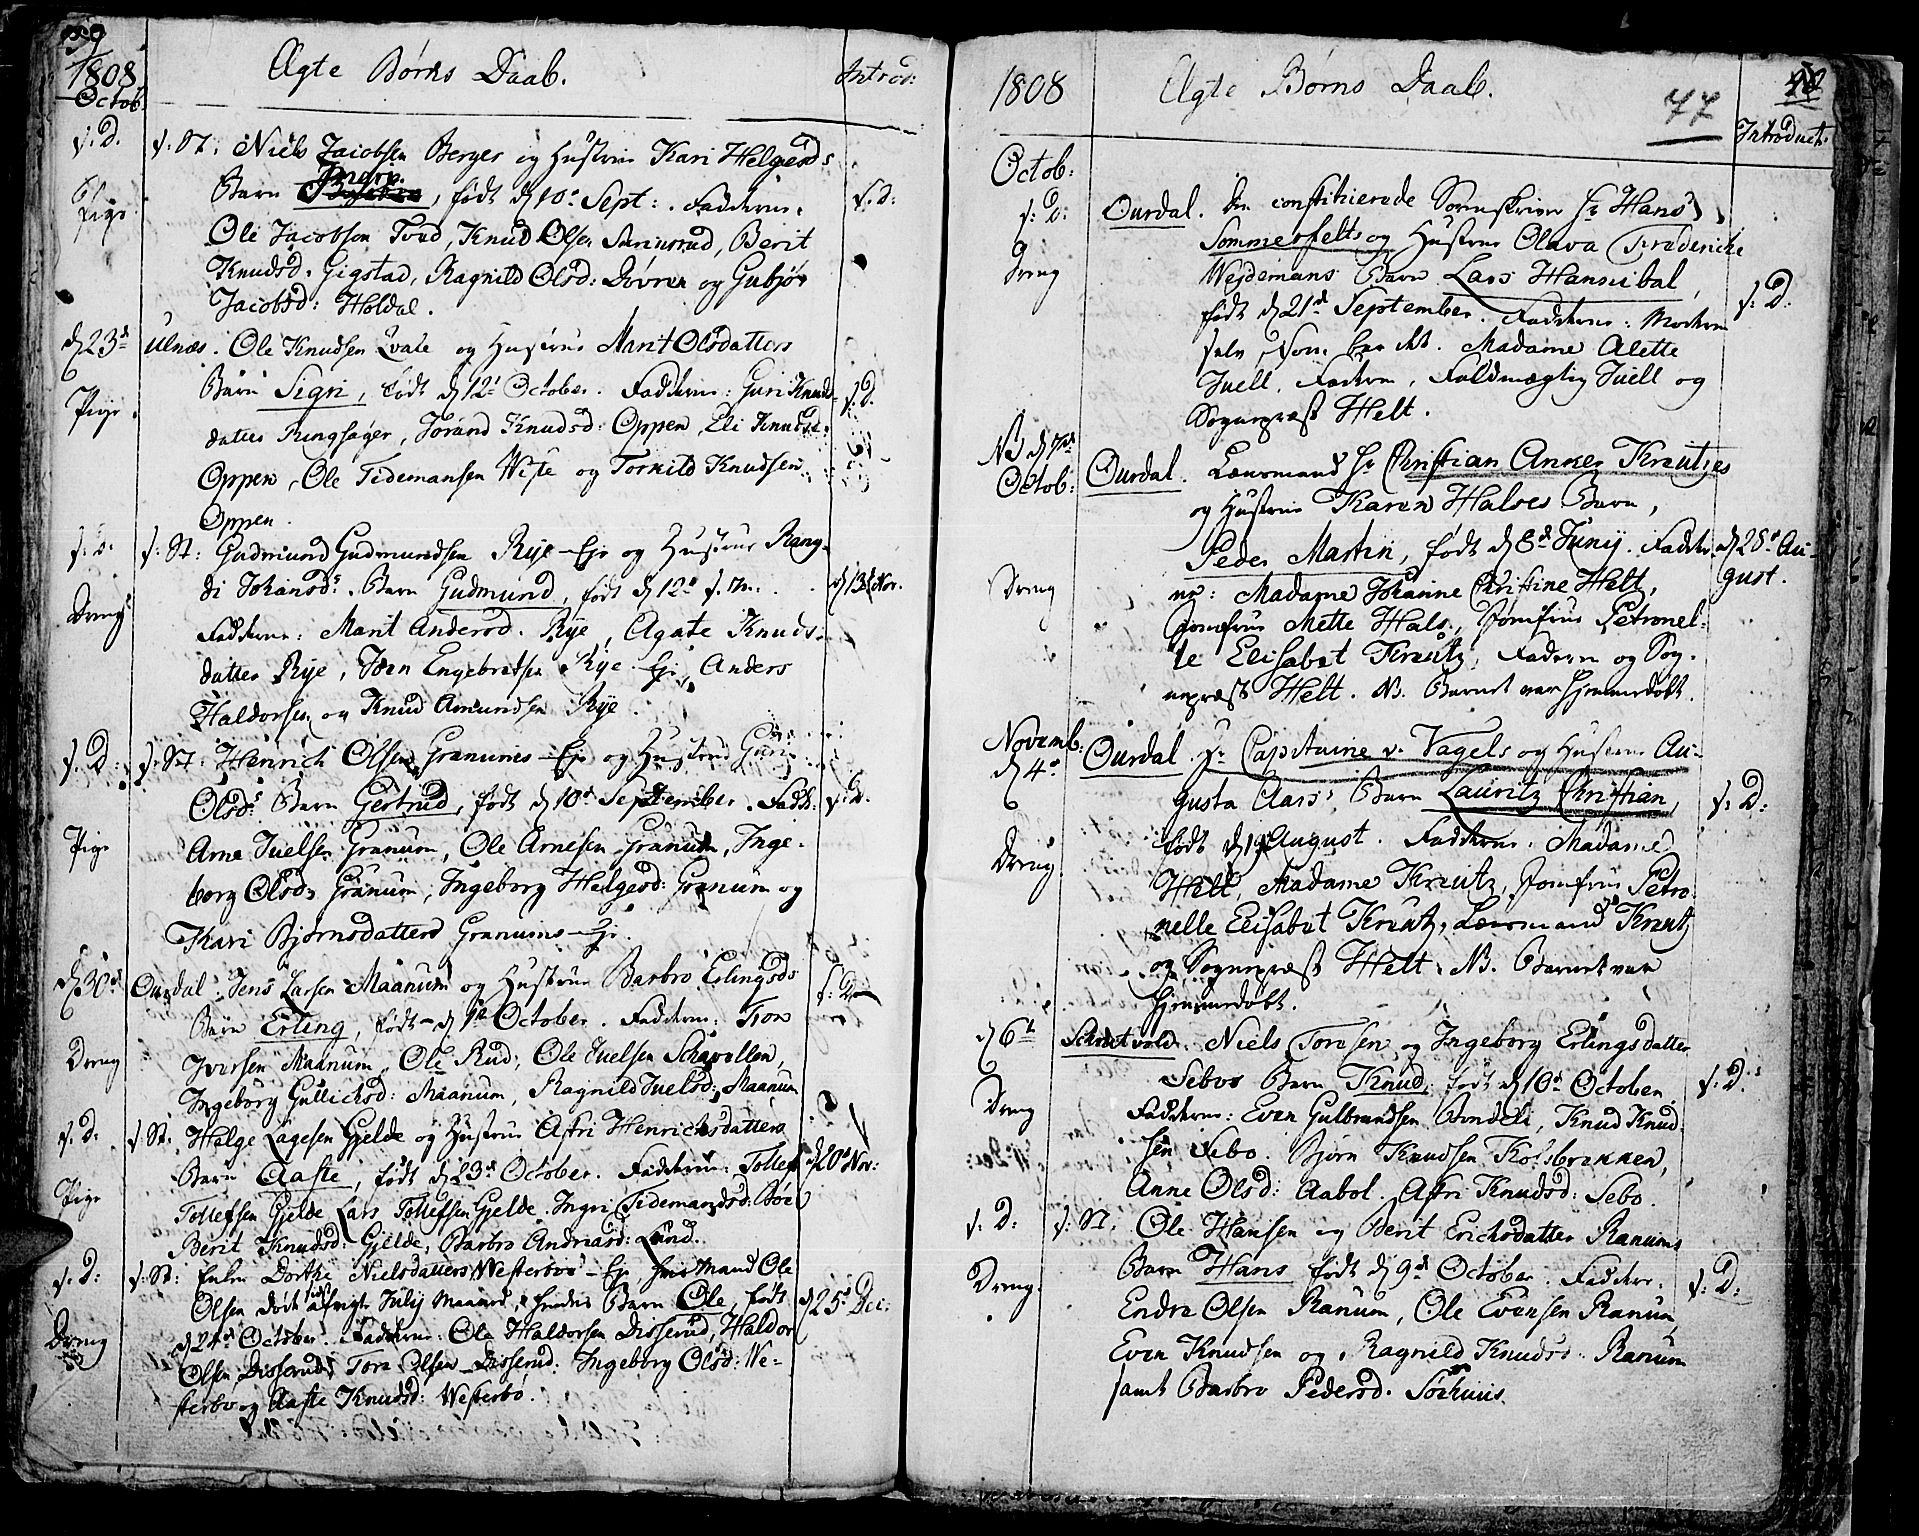 89
1808
Ægte Børns Daab.
Introd:
Octob.
s. D.
s. St: Niels Jacobsen Berges og Hustrue Kari Helgesds
Pige
Barn, født d 10d Sept: Faddere:
s. d:
Ole Jacobsen Tved, Knud Olsen, Berit
Knudsd. Gigstad, Ragnild Olsd: Døvren og Gubjør
Jacobsd: Holdal.
d 23d
Ulnæs. Ole Knudsen Qvale og Hustrue Marit Olsdatters
Pige
Barn Sigri, født d 12t October. Faddere: Guri Knuds-
s. D.
datter Ringsager, Jørand Knudsd: Oppen, Eli Knudsd:
Oppen, Ole Tidemansen Wiste og Torkild Knudsen
Oppen.
s. D.
s. St: Gudmund Gudmundsen Rye Eje og Hustrue Rang-
di Johansds. Barn Gudmund, født d 12d s. M.
d 13d Nov.
Dreng
Faddere: Marit Andersd. Rye, Agate Knuds-
datter Rye, Iver Engebretsen Rye Eje, Anders
Haldorsen og Knud Amundsen Rye.
s. D:
s. St: Henrich Olsen Granums Eje og Hustrue Guri
Olsds Barn Gertrud, født d 10d September. Fadd:
s. D.
Pige
Arne Juelsen Granum, Ole Arnesen Granum, Inge-
borg Olsd: Granum, Ingeborg Helgesd: Granum og
Kari Bjørnsdatter Granums Eje.
d 30d
Ourdal. Jens Larsen Maanum og Hustrue Barbro Erlingsds
s. D
Barn Erling, født d 1te October. Faddere: Tron
Dreng
Iversen Maanum, Ole Rud, Ole Juelsen Skavollen,
Ingeborg Gullichsd: Maanum, Ragnild Juelsd: Maanum
s. D:
s. St: Helge Lagesen Gjelde og Hustrue Astri Henrichsdatters
Barn Aaste, født d 23d October. Faddere: Tollef
d 20d Nov:
Pige
Tollefsen Gjelde, Lars Tollefsen Gjelde, Ingri Tidemandsd: Bøe
Berit Knudsd: Gjelde, Barbro Andriasd: Lund.
s. D:
s. St: Enke Dorthe Nielsdatters Westerboe Eje, hvis Mand Ole
Olsen døde sidst afvigte July Maaned, hendes Barn Ole, født
d 25d Dec:
Dreng
d 24d October. Faddere: Ole Haldorsen Disserud, Haldor
Olsen Disserud, Tore Olsen Disserud. Ingeborg Olsd: We-
sterbø og Aaste Knudsd: Westerbø.
1808
Ægte Børns Daab.
44
90
Introduct.
Octob:
s. D:
Ourdal. Den constituerede Sorenskriver Hr Hans
Sommerfelts og Hustrue Olava Fredericke
Dreng
Wejdemans Barn Lars Hannibal,
født d 21d September. Faddere: Moderen
s. D.
selv, som bar det. Madame Alette
Juell, Faderen, Fuldmægtig Juell og
Sognepræst Helt.
NB d 7de
Octob:
Ourdal. Lænsmand Hr Christian Anker Kreutzes
og Hustrue Karen Halses Barn,
Peder Martin, født d 8d Junij. Fadder-
d 28d Au-
gust.
Dreng
ne: Madame Johanne Christine Helt,
Jomfrue Mette Hals, Jomfrue Petronel-
le Elisabet Kreutz, Faderen og Sog-
nepræst Helt. NB. Barnet var hjemmedøbt.
Novemb:
d 4d
Ourdal. Hr Capitaine v. Vagels og Hustrue Au-
gusta Clars's Barn Lauritz Christian,
s. D:
født d 19 August. Faddere: Madame
Dreng
Helt, Madame Kreutz, Jomfrue Petro-
nelle Elisabet Kreutz, Lænsmand Kreutz
og Sognepræst Helt. NB. Barnet var
hjemmedøbt.
d 6te
Schrutvold. Niels Toresen og Ingeborg Erlingsdatter
Sebos Barn Knud, født d 10d October.
s. D.
Dreng
Faddere: Even Gulbrandsen, Knud Knud-
sen Sebo. Bjørn Knudsen Kolsbrekken,
Anne Olsd: Aabol. Astri Knudsd: Sebo.
s. D:
s. St. Ole Hansen og Berit Erichsdatter Ranums
Dreng.
Barn Hans født d 9d October. Faddere:
s. D:
Endre Olsen Ranum, Ole Evensen Ranum,
Even Knudsen og Ragnild Knudsd. Ranum
samt Barbro Pedersd.